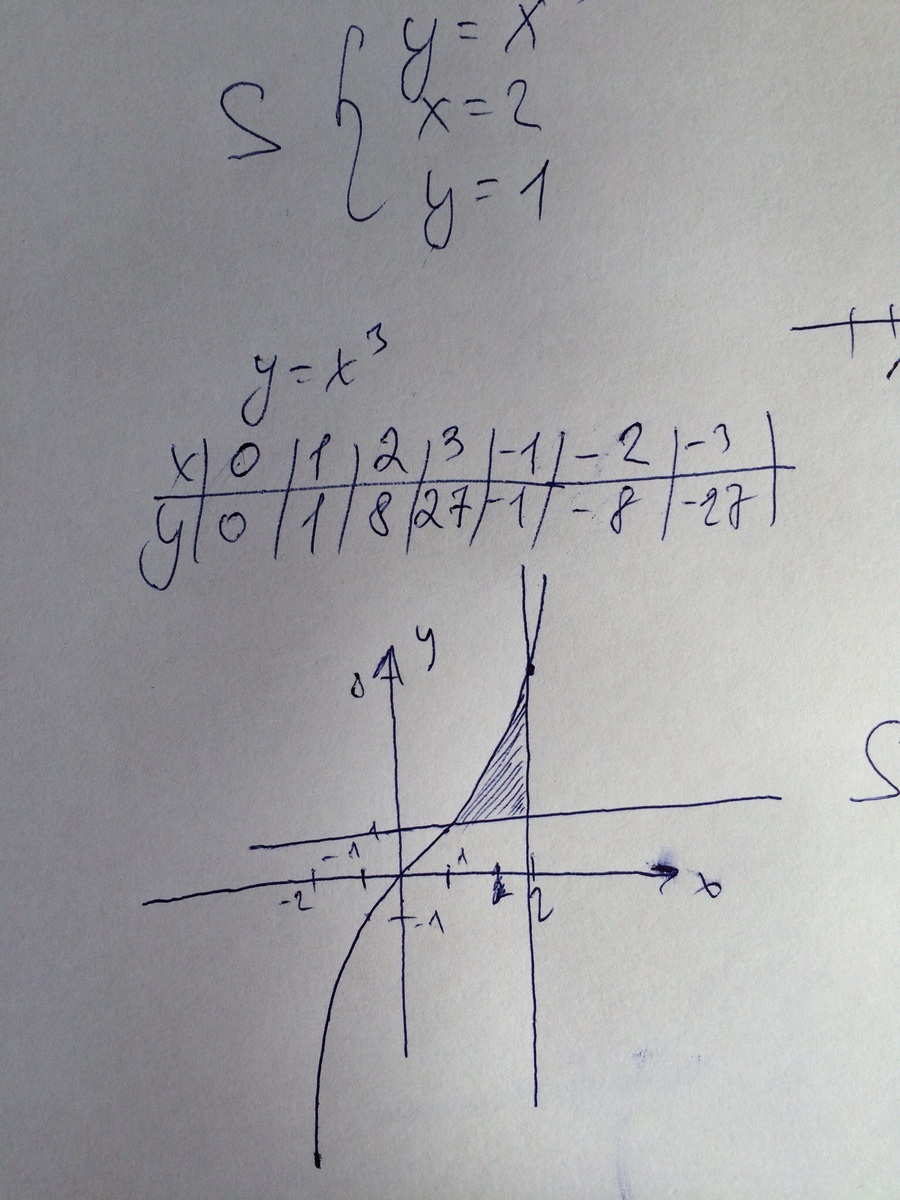 S { y = x
x = 2
y = 1
y = x³
x | 0 | 1 | 2 | 3 | -1 | - 2 | -3 |
y | 0 | 1 | 8 | 27 | -1 | - 8 | -27 |
y
1
-2 -1 1 2 x
-1
S